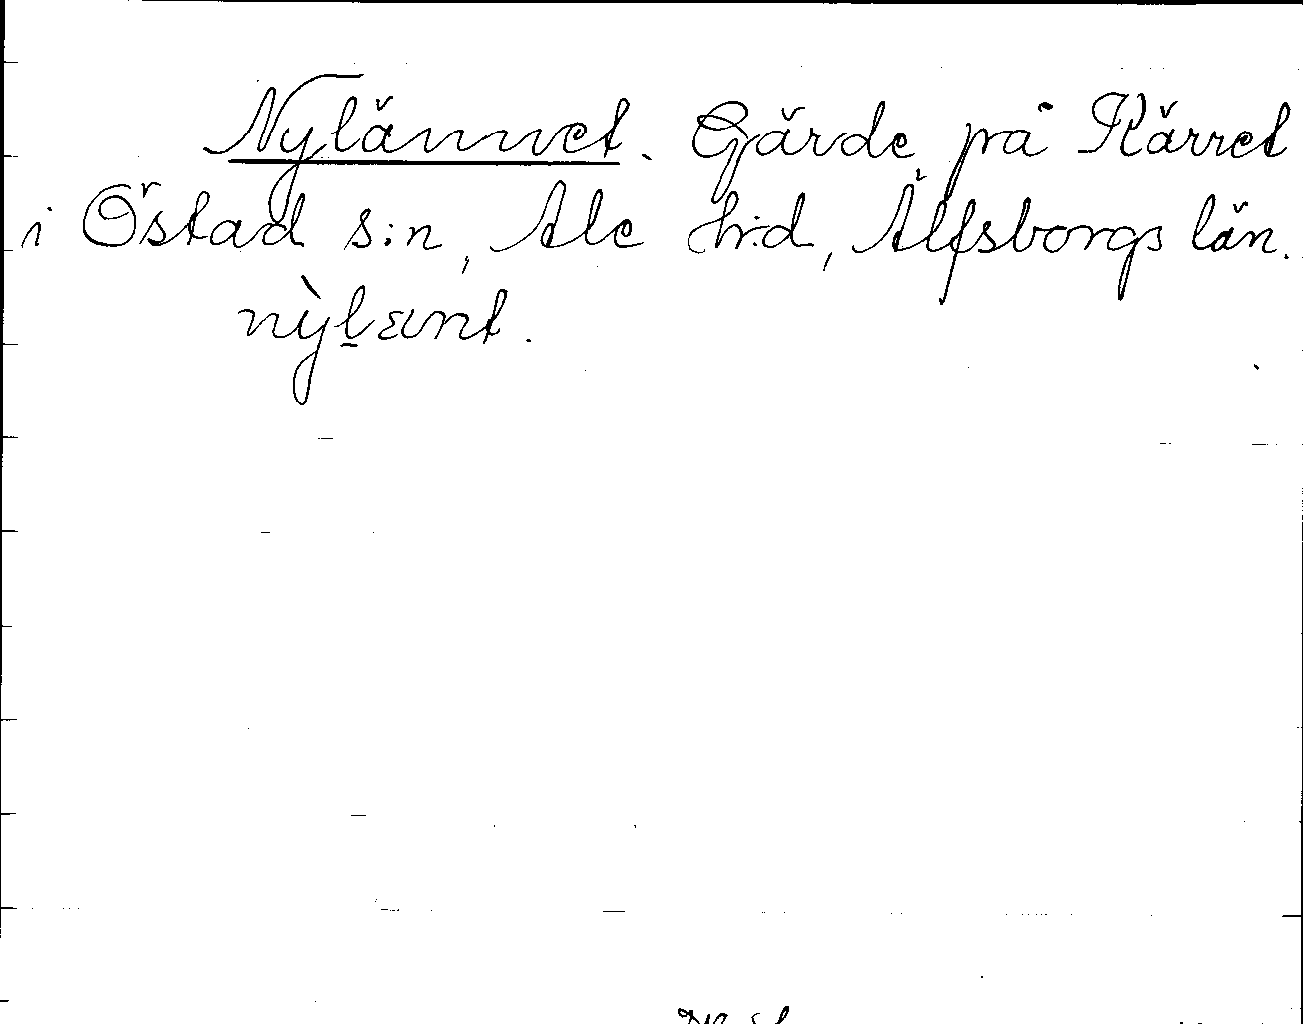 Nylännet. Gärde på Kärret
i Östad s:n, Ale h:d, Älfsborgs län.
nỳlænt.